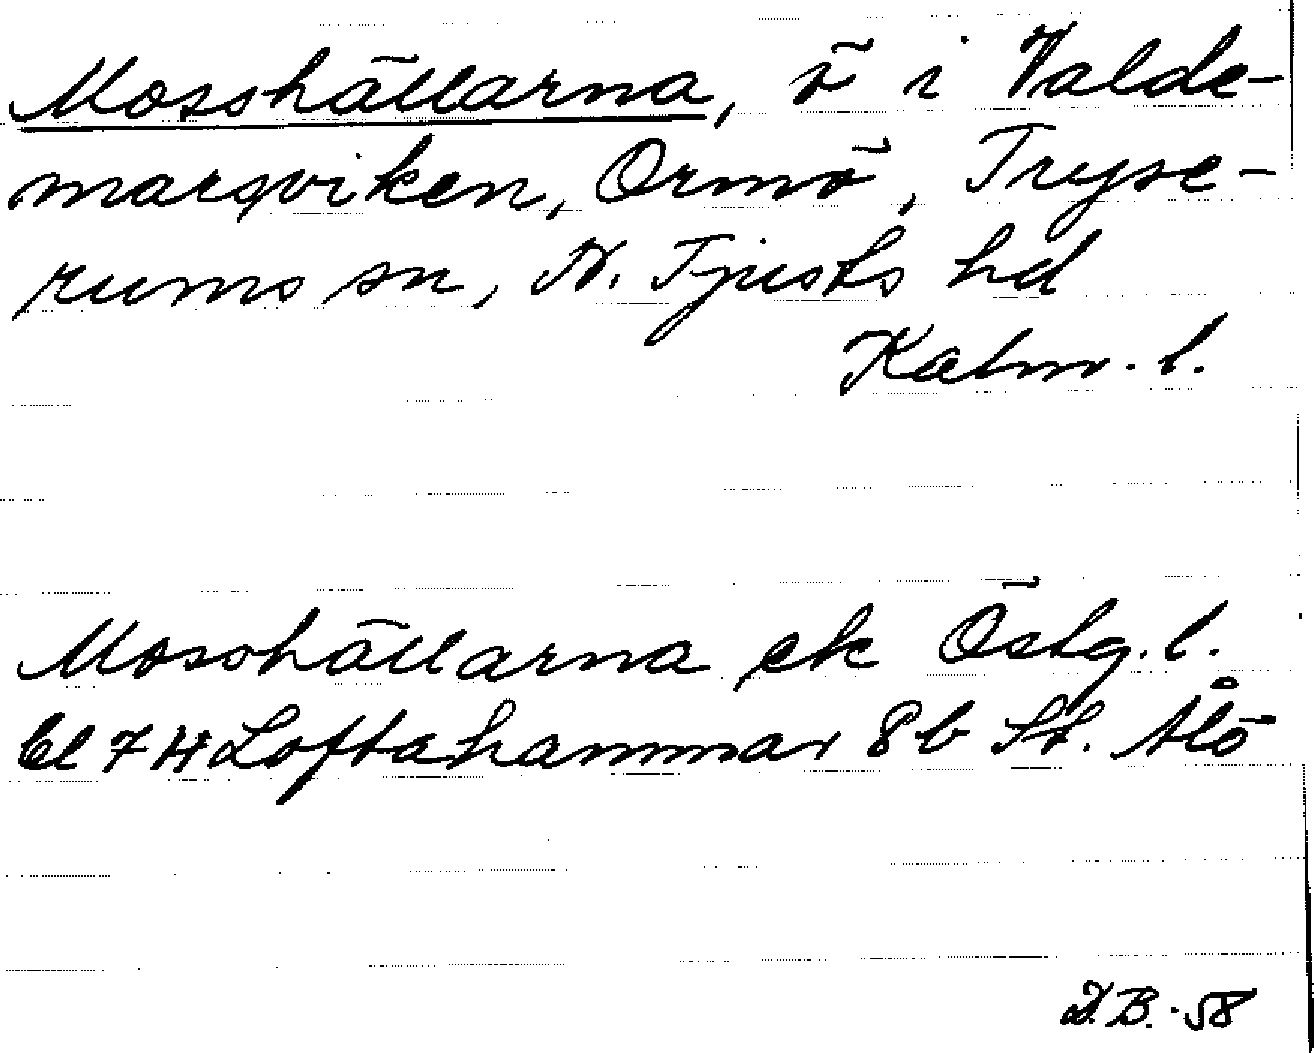 Mosshällarna, ö i Valde-
marsviken, Ormö, Tryse-
rums sn, N. Tjusts hd
Kalm. l.
Mosshällarna ek Östg. l.
bl 7H Loftahammar 8b St. Ålö
D.B.-58